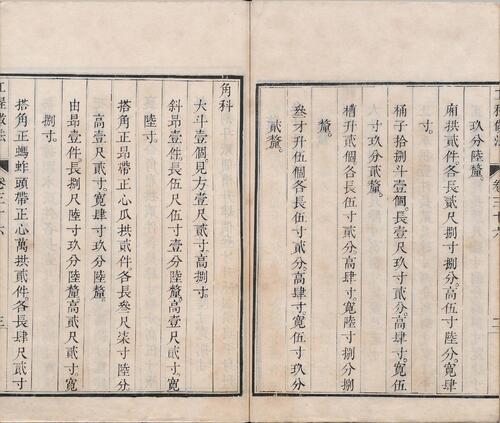 玖分陸釐。
廂拱貳件各長貳尺捌寸捌分。高伍寸陸分。寬肆
寸。
桶子拾捌斗壹個。長壹尺貳分。高肆寸。寬伍
寸玖分貳釐。
槽升貳個各長伍寸貳分。高肆寸。寬陸寸捌分捌
釐。
叁才升伍個各長伍寸貳分。高肆寸。寬伍寸玖分
貳釐。
角科
大斗壹個見方壹尺貳寸。高捌寸。
斜昂壹件。長伍尺伍寸壹分陸釐。高壹尺貳寸。寬
陸寸。
搭角正昂帶正心瓜拱貳件各長叁尺柒寸陸分。
高壹尺貳寸。寬肆寸玖分陸釐。
由昂壹件長捌尺陸寸玖分陸釐。高貳尺貳寸。寬
捌寸。
搭角正螞蚱頭帶正心萬拱貳件各長肆尺貳寸
工程做法 卷三十六 三